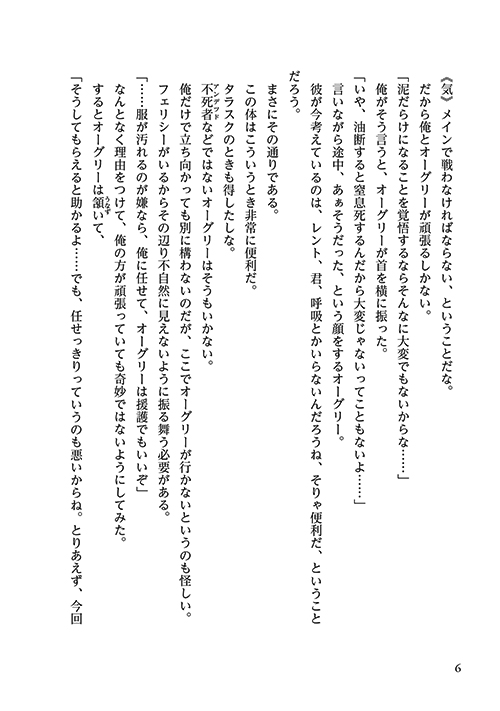 《気》メインで戦わなければならない、ということだな。
だから俺とオーグリーが頑張るしかない。
「泥だらけになることを覚悟するならそんなに大変でもないからな……」
俺がそう言うと、オーグリーが首を横に振った。
「いや、油断すると窒息死するんだから大変じゃないってこともないよ……」
言いながら途中、あぁそうだった、という顔をするオーグリー。
彼が今考えているのは、レント、君、呼吸とかいらないんだろうね、そりゃ便利だ、ということ
だろう。
まさにその通りである。
この体はこういうとき非常に便利だ。
タラスクのときも得したしな。
不死者などではないオーグリーはそうもいかない。
アンデッド
俺だけで立ち向かっても別に構わないのだが、ここでオーグリーが行かないというのも怪しい。
フェリシーがいるからその辺り不自然に見えないように振る舞う必要がある。
「……服が汚れるのが嫌なら、俺に任せて、オーグリーは援護でもいいぞ」
なんとなく理由をつけて、俺の方が頑張っていても奇妙ではないようにしてみた。
するとオーグリーは頷いて、
うなず
「そうしてもらえると助かるよ……でも、任せっきりっていうのも悪いからね。とりあえず、今回
6